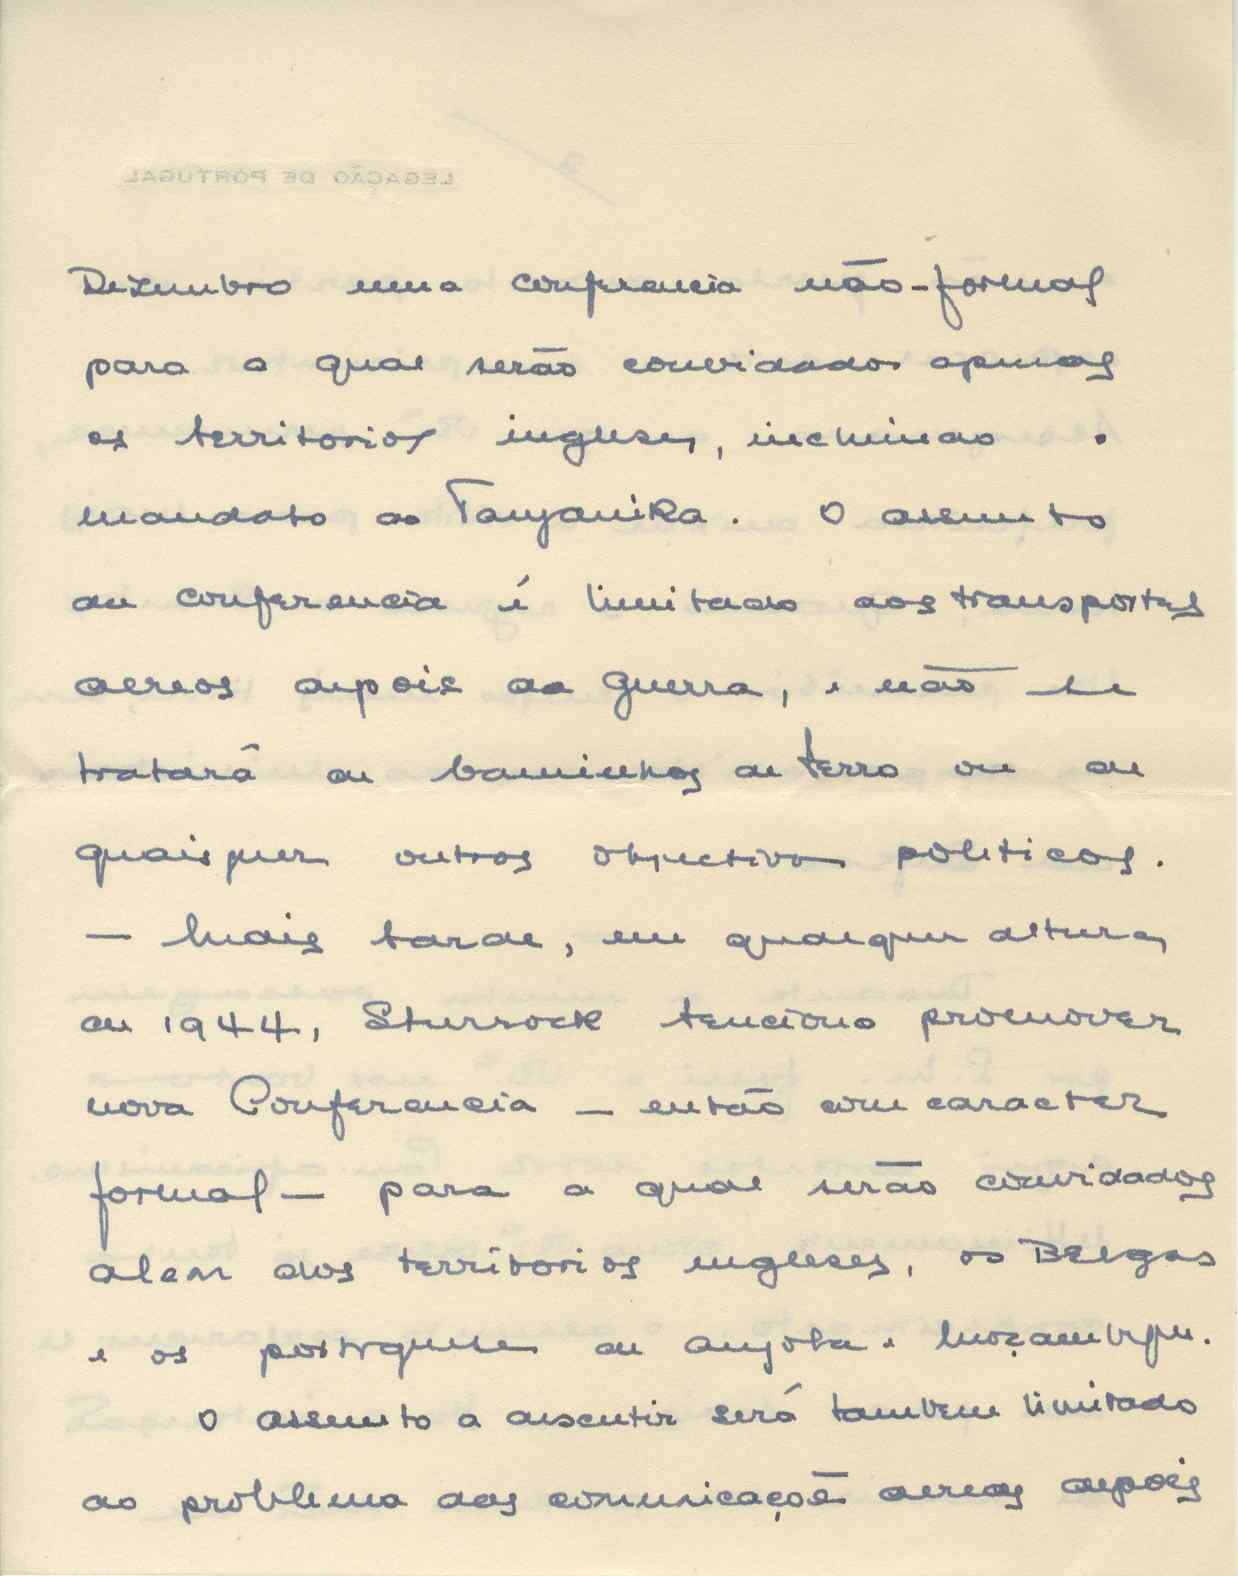 LEGAÇÃO DE PORTUGAL
Dezembro uma conferencia não-formal
para a qual serão convidados apenas
os territorios ingleses, incluindo o
mandato do Tanganika. O assunto
da conferencia é limitado aos transportes
aereos depois da guerra, e não se
tratará de Caminhos de terro ou de
quaisquer outros objectivos politicos.
— Mais tarde, em qualquer altura
de 1944, Sturrock tenciona promover
nova Conferencia — então com caracter
formal — para a qual serão convidados
alem dos territorios ingleses, os Belgas
e os portugueses de Angola e Moçambique.
O assunto a discutir será tambem limitado
ao problema das comunicações aereas depois